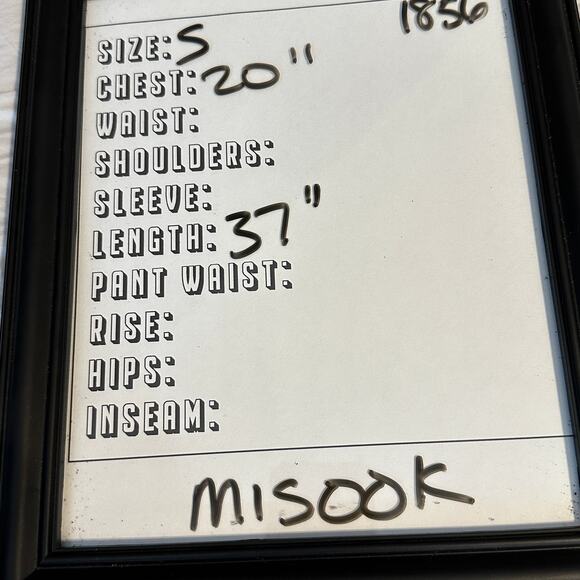 1856
SIZE: S
CHEST: 20"
WAIST:
SHOULDERS:
SLEEVE:
LENGTH: 37"
PANT WAIST:
RISE:
HIPS:
INSEAM:
MISOOK